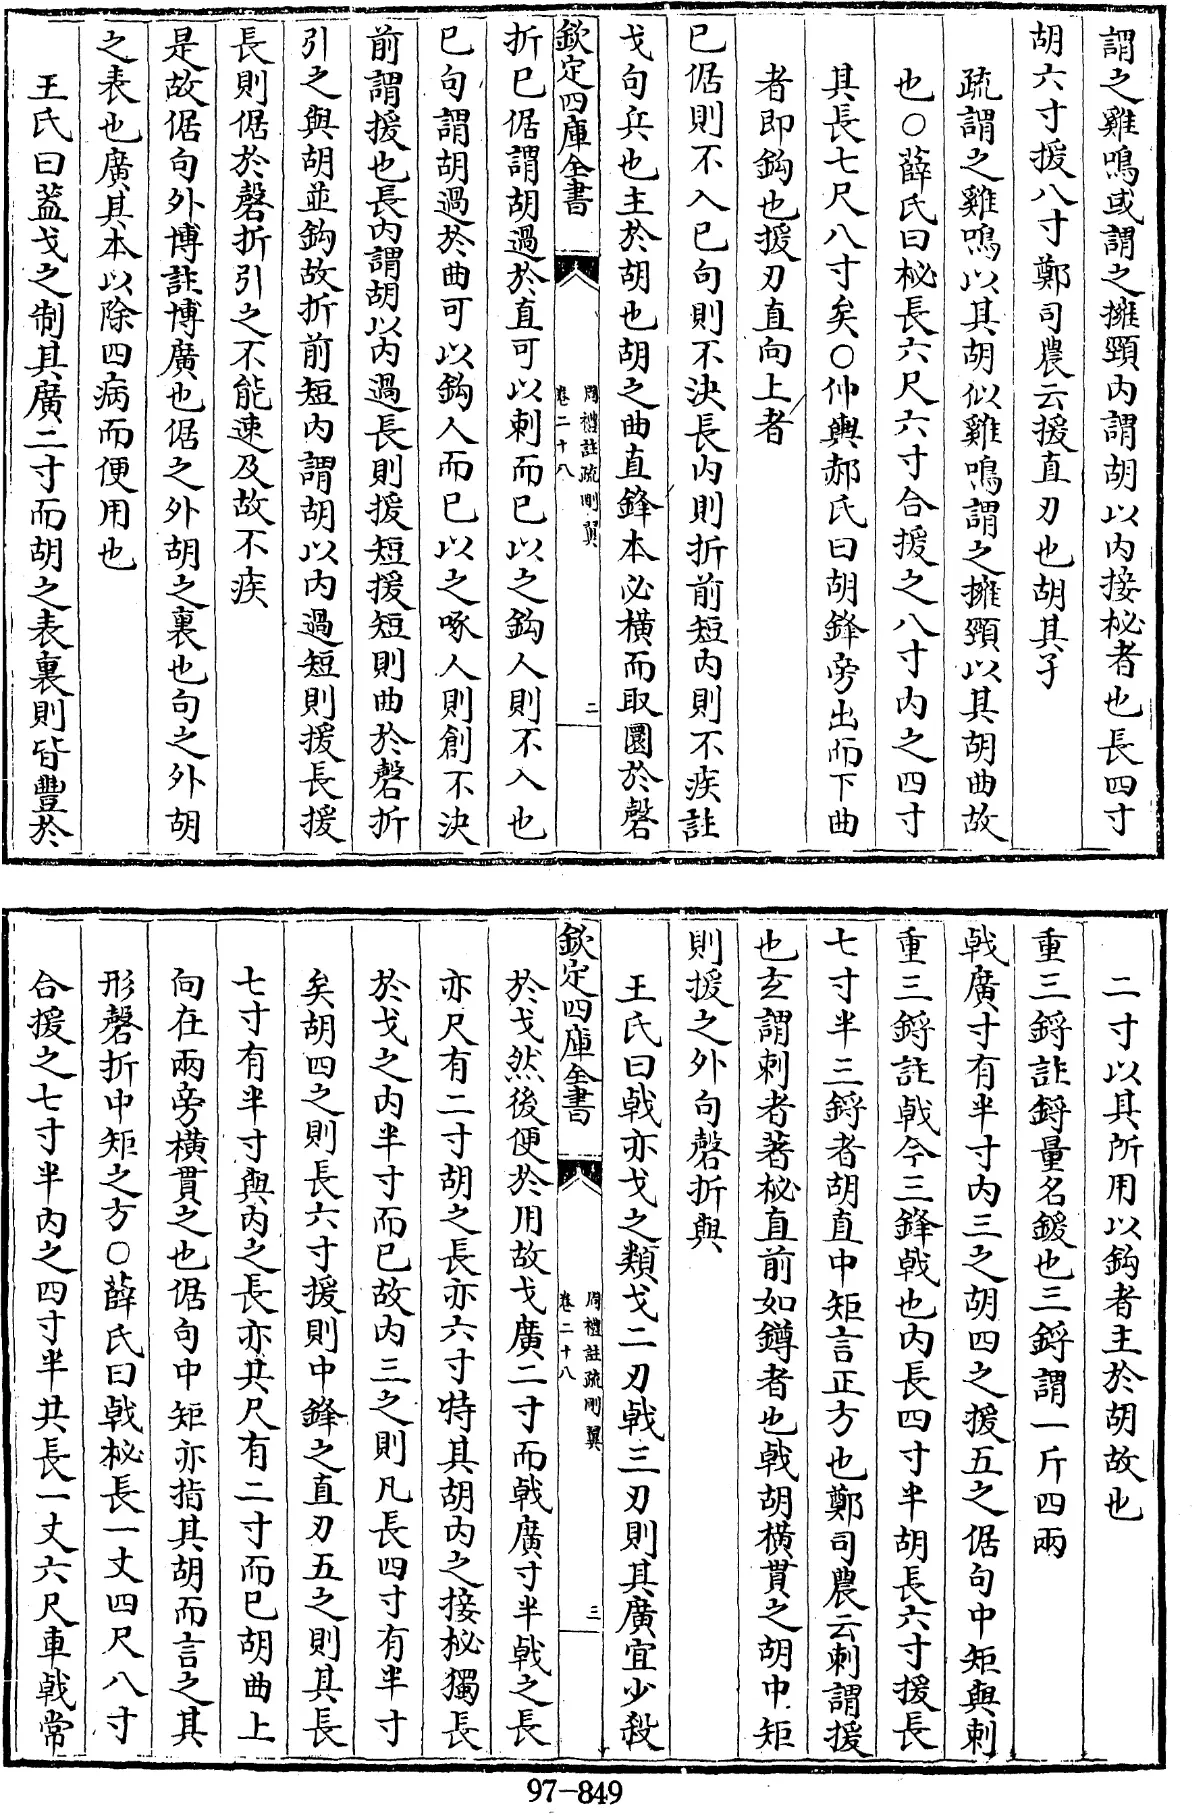 謂之雞鳴或謂之擁頸内謂胡以内接柲者也長四寸
胡六寸援八寸鄭司農云援直刃也胡其孑
疏謂之雞鳴以其胡似雞鳴謂之擁頸以其胡曲故
也○薛氏曰柲長六尺六寸合援之八寸内之四寸
其長七尺八寸矣○仲輿郝氏曰胡鋒旁出而下曲
者即鈎也援刃直向上者
已倨則不入已句則不決長内則折前短内則不疾註
戈句兵也主於胡也胡之曲直鋒本必横而取圜於磬
欽定四庫全書
周禮註疏刪翼
卷二十八
二
折已倨謂胡過於直可以刺而已以之鈎人則不入也
已句謂胡過於曲可以鈎人而已以之啄人則創不決
前謂援也長内謂胡以内過長則援短援短則曲於磬折
引之與胡並鈎故折前短内謂胡以内過短則援長援
長則倨於磬折引之不能速及故不疾
是故倨句外博註博廣也倨之外胡之裏也句之外胡
之表也廣其本以除四病而便用也
王氏曰蓋戈之制其廣二寸而胡之表裏則皆豐於
二寸以其所用以鈎者主於胡故也
重三鋝註鋝量名鍰也三鋝謂一斤四兩
戟廣寸有半寸内三之胡四之援五之倨句中矩與刺
重三鋝註戟今三鋒戟也内長四寸半胡長六寸援長
七寸半三鋝者胡直中矩言正方也鄭司農云刺謂援
也玄謂刺者著柲直前如鐏者也戟胡横貫之胡中矩
則援之外句磬折與
王氏曰戟亦戈之類戈二刃戟三刃則其廣宜少殺
欽定四庫全書
周禮註疏刪翼
卷二十八
三
於戈然後便於用故戈廣二寸而戟廣寸半戟之長
亦尺有二寸胡之長亦六寸特其胡内之接柲獨長
於戈之内半寸而已故内三之則凡長四寸有半寸
矣胡四之則長六寸援則中鋒之直刃五之則其長
七寸有半寸與内之長亦共尺有二寸而已胡曲上
向在兩旁横貫之也倨句中矩亦指其胡而言之其
形磬折中矩之方○薛氏曰戟柲長一丈四尺八寸
合援之七寸半内之四寸半共長一丈六尺車戟常
97-849